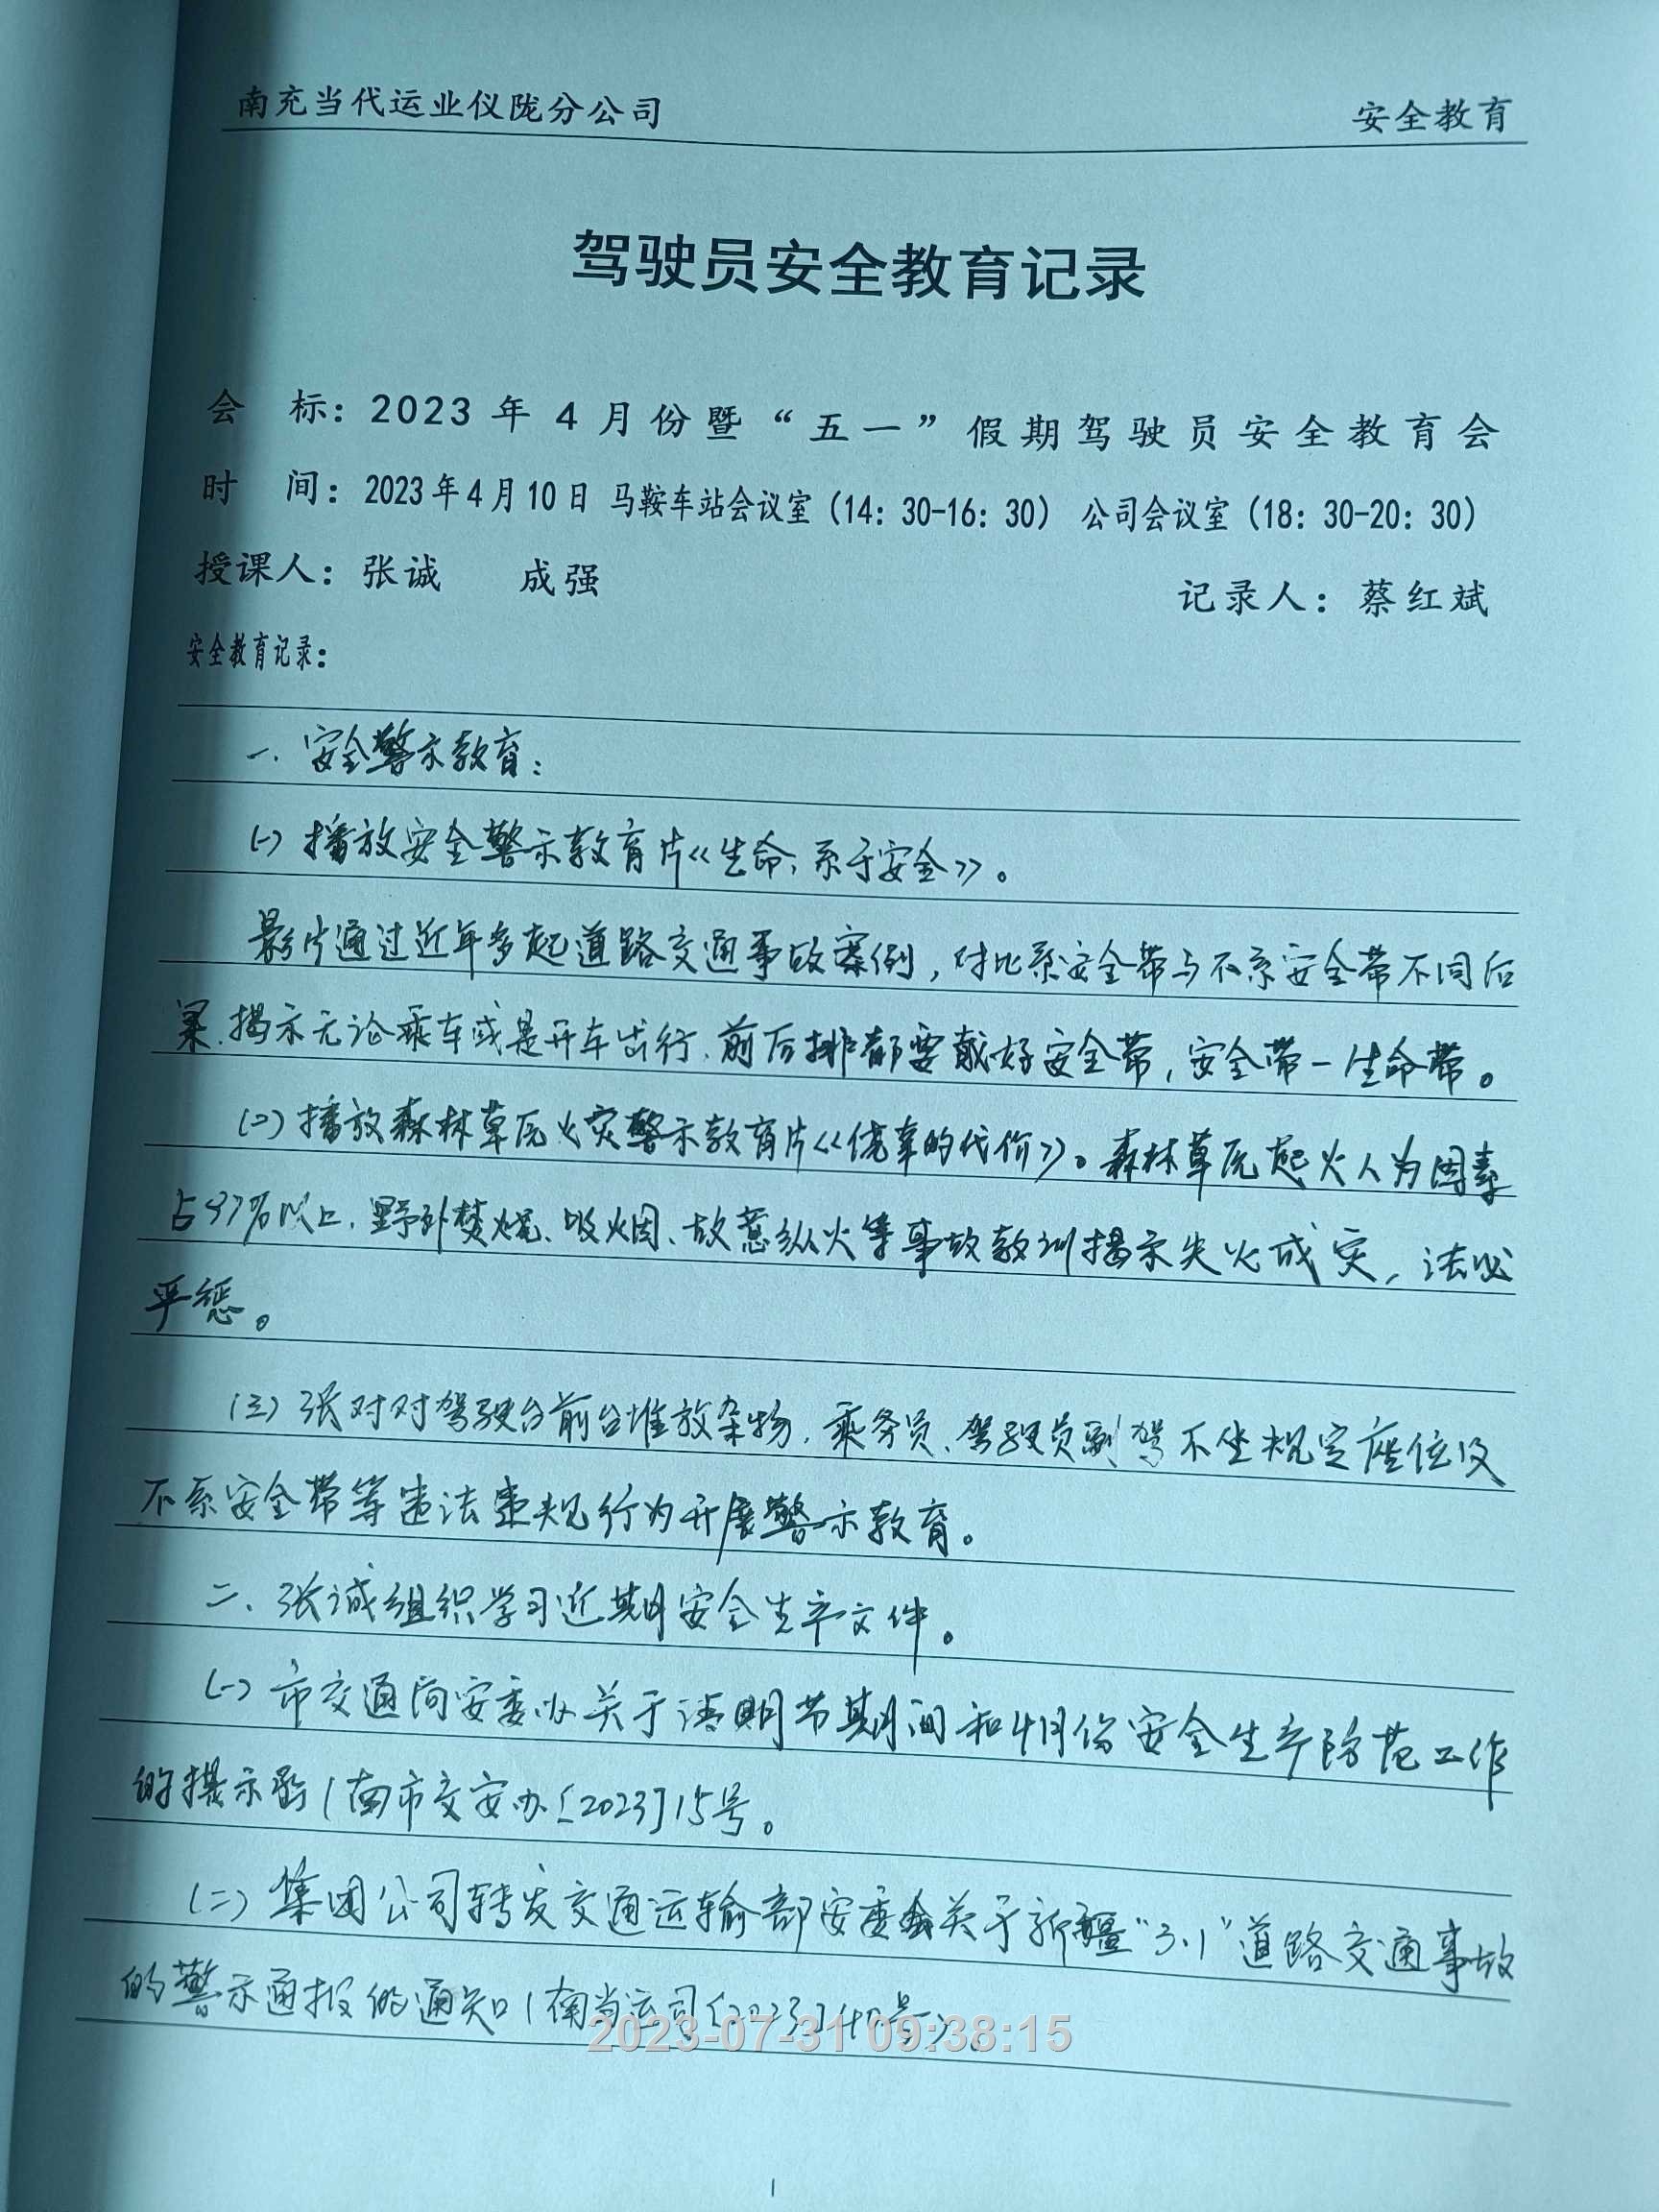 南充当代运业仪陇分公司 安全教育
驾驶员安全教育记录
会 标：2023 年 4 月份暨“五一”假期驾驶员安全教育会
时 间：2023年4月10日 马鞍车站会议室（14：30-16：30） 公司会议室（18：30-20：30）
授课人：张诚 成强 记录人：蔡红斌
安全教育记录：
一、安全警示教育：
(一) 播放安全警示教育片《生命，系于安全》。
影片通过近年多起道路交通事故案例，对比系安全带与不系安全带不同后
果，揭示无论乘车或是开车出行，前后排都要戴好安全带，安全带一生命带。
(二) 播放森林草原火灾警示教育片《侥幸的代价》。森林草原起火人为因素
占97%以上，野外焚烧、吸烟、故意纵火等事故教训揭示失火成灾，法必
严惩。
(三) 张对对驾驶台前台堆放杂物，乘务员、驾驶员副驾不坐规定座位及
不系安全带等违法违规行为开展警示教育。
二、张诚组织学习近期安全生产文件。
(一) 市交通局安委办关于清明节期间和4月份安全生产防范工作
的提示函（南市交安办〔2023〕15号。
(二) 集团公司转发交通运输部安委会关于新疆“3.1”道路交通事故
的警示通报的通知（南当运司〔2023〕号）。
2023-07-31 09:38:15
1